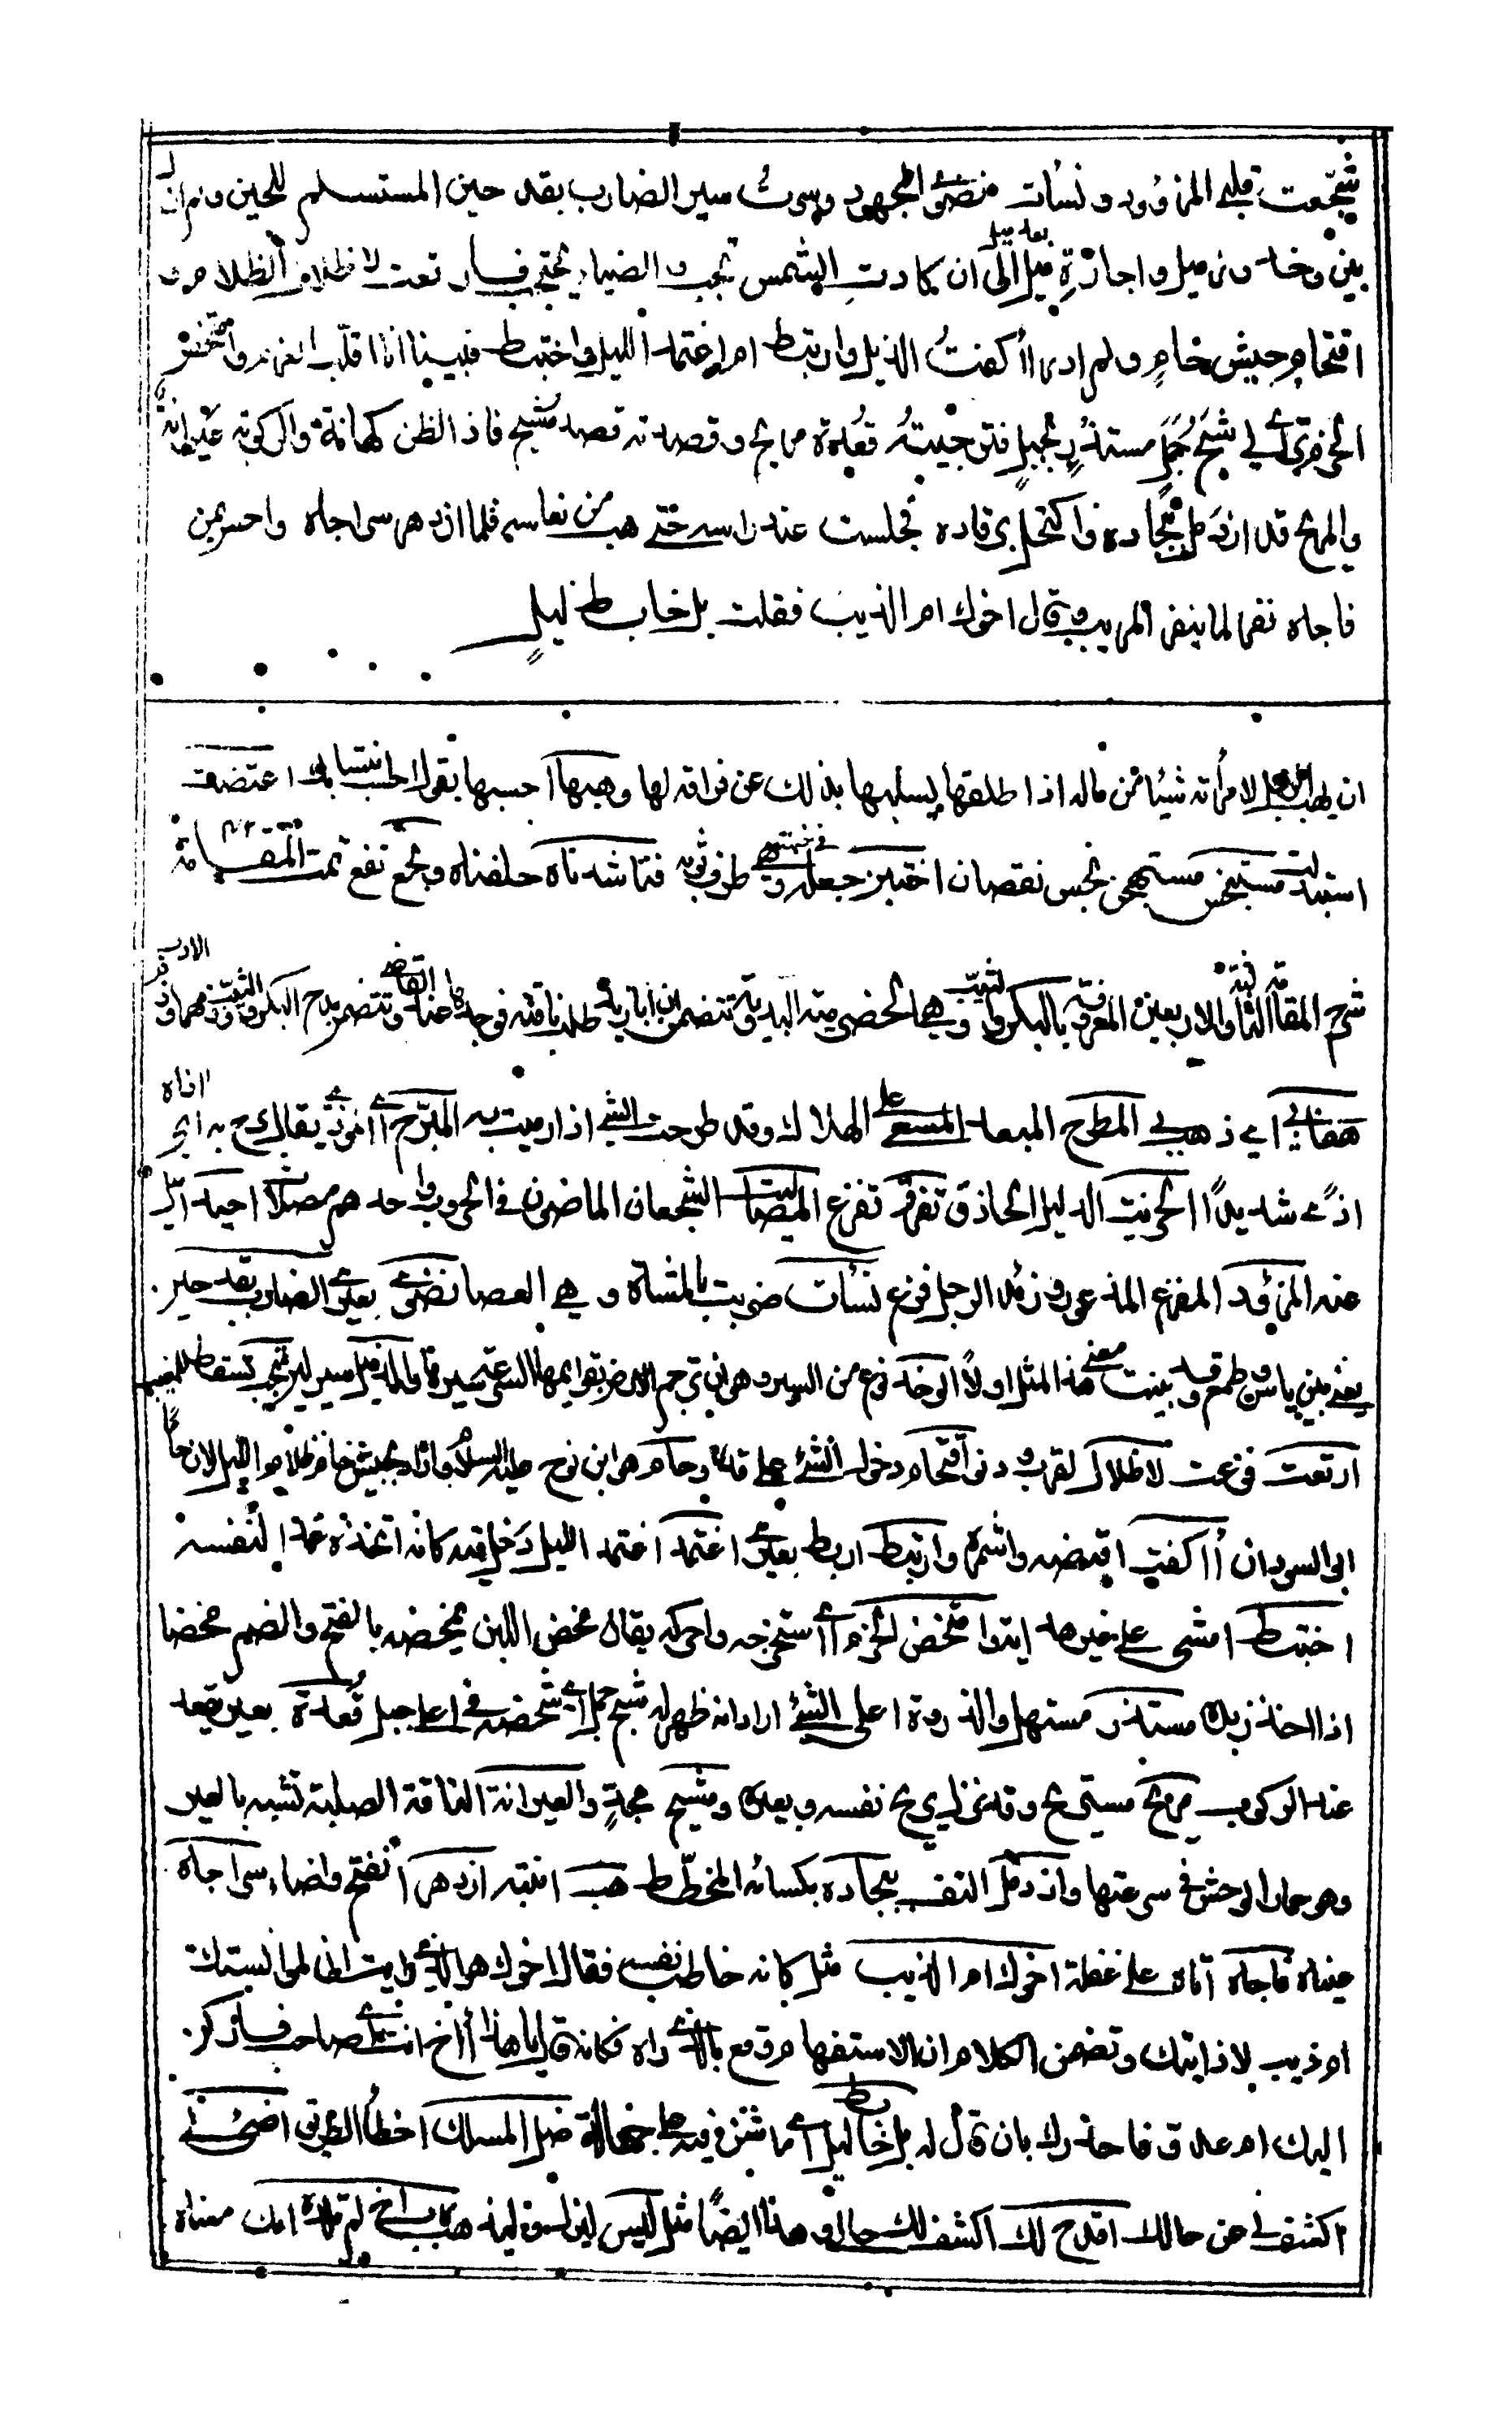 شجّعت قلبي المزؤود ونسأت نضوي المجهود وسرت سير الضارب بقدحين المستسلم للحين ولم ازل
بين وخد وذميل واجازة ميل بعد ميل الى ان كادت الشمس تجب والضياء يحتجب فارتعت لاظلال الظلام و
اقتحام جيش حام ولم ادر أأكفت الذيل وارتبط ام اغتمد الليل واختبط فبينا انا اقلّب العزم وامتخض
الحزم تراءى لي شبح جمل مستذر بجبل فترجيته قعدة مريح وقصدته قصد مشيح فاذا الظن كهانة والركوبة عيرانة
والمريح قد ازدمل ببجاده واكتحل برقاده فجلست عند راسه حتى هب من نعاسه فلما ازدهر سراجاه واحس بمن
فاجاه نفر كما ينفر المريب وقال اخوك ام الذيب فقلت بل خابط ليل
ان يهب الرجل لامرأته شيئا من ماله اذا طلقها يسليها بذلك عن فراقه لها وهبها احسبها بقولا طب انتسابك اعتضت
استبدلت مستبخس مستهجن بخس نقصان اختبن جعله في خبنته وهي طرف ثوبه فناشدناه حلفناه وبخع نفع تمت المقامة
شرح المقامة الثالثة والاربعين المعروفة بالبكر والثيب وهي الحضرمية البدوية تتضمن ان ابا زيد طلد ناقته فوجدها عند القاضي وتتضمن مدح البكر والثيب وذمهما وذم الادب
هفا بي اي ذهب بي المطرح المبعد المسعى على الهلاك وقد طرحت الشيء اذا رميت به المبرّح اي المؤذي يقال برح به اي اذاه
اذى شديدا الخريت الدليل الحاذق تفرق تفزع المصاليت الشجعان الماضون في الحروب واحدهم مصلات اجد
عند المزؤود المفزع المذعور وزئد الرجل فزع نسأت ضربت بالمنساة وهي العصا نضوي بعيري الضارب بقدحين
يعني بين ياس وطمع وقد بينت معنى هذا المثل اولا الوخد نوع من السير وهو ان ترجم الارض بقوايمها الذميل سير لين تجب تسقط للمغيب
ارتعت فزعت لاظلال لقرب ودنو اقتحام دخول الشيء على وحام هو ابن نوح عليه السلام واراد بجيش حام ظلام الليل لان حاما
ابو السودان أأكفت اقبضه واشمره وارتبط اربط بعيري اغتمد اغتمد الليل دخل فيه كانه اتخذه غمدا لنفسه
اختبط امشي على غير هدى امتخض الحزم اي استخرجه واحركه يقال مخض اللبن يمخضه بالفتح والضم مخضا
اذا اخذ زبده مستذر والذروة اعلى الشيء اراد انه ظهر له شبح جمل اي شخصه في اعلى جبل قعدة بعير يقعد
عند الركوب مريح مستريح وقد نزل يريح نفسه وبعيره ومشيح مجد والعيرانة الناقة الصلبة تشبه بالعير
وهو حمار الوحش في سرعتها وازدمل التف ببجاده بكسائه المخطط هب انتبه ازدهر انفتح واضاء سراجاه
عيناه فاجاه اتاه على غفلة اخوك ام الذيب مثل كانه خاطب نفسه فقال اخوك هو الذي رايت
ام ذيب لاذايتك وتضمن الكلام ان الاستفهام وقع بالذي راه فكانه قال يا هذا أأخ انت
اليك ام عدو فاحذرك بان قال له بل خابط ليل اي ماش فيه على جهالة ضل المسلك اخطأ الطريق اضئ لي
اكشف لي عن حالك اقدح لك اكشف لك حالي وهذا ايضا مثل رب اخ لم تلده امك معناه